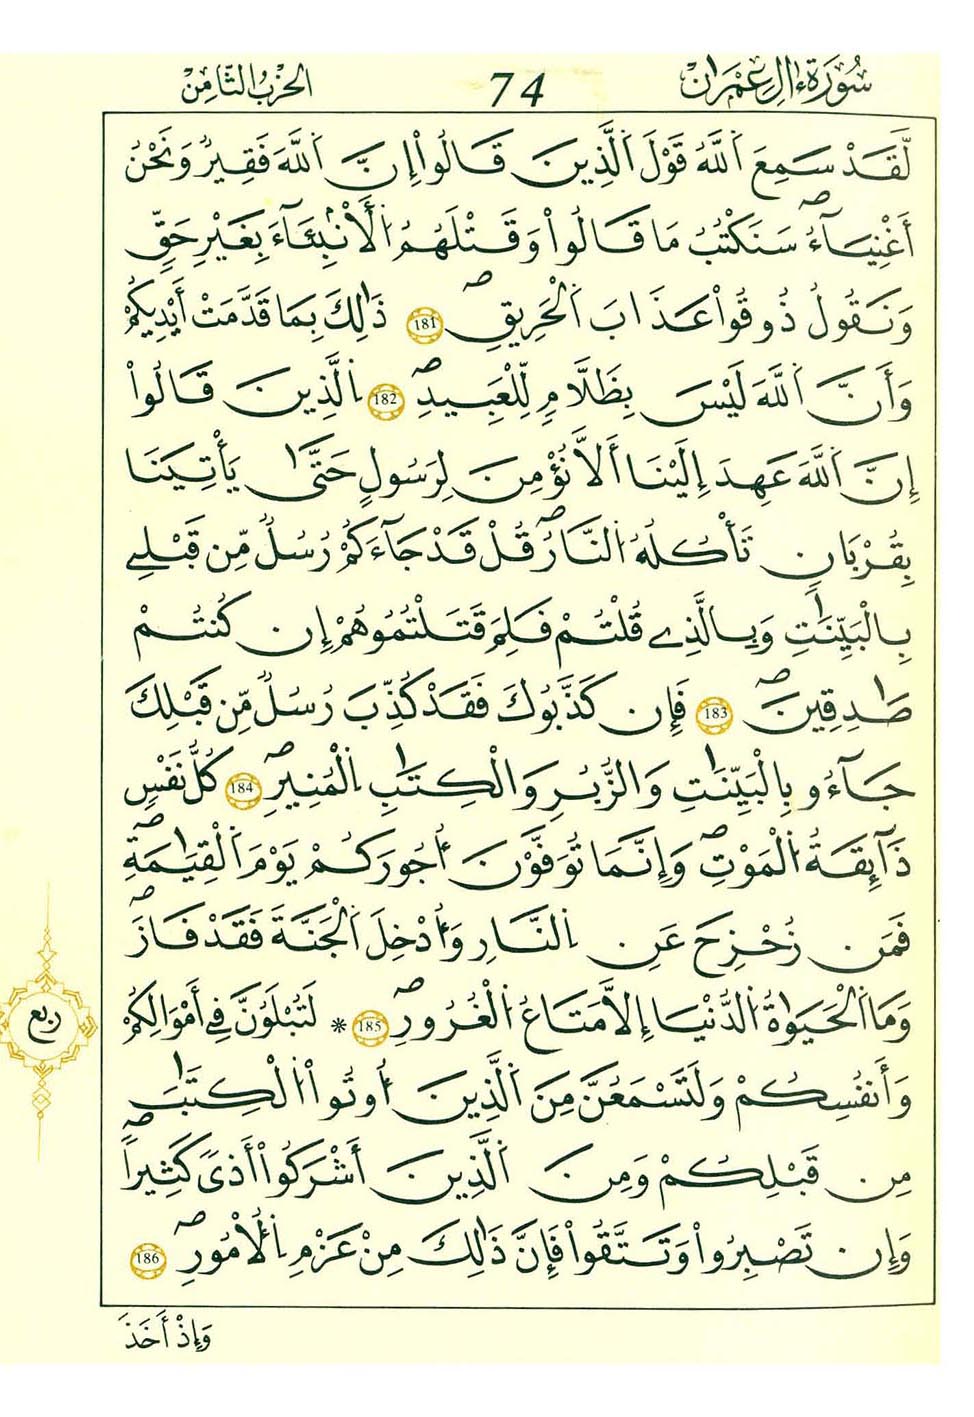 سُورَةُ ءَالِ عِمْرَان 74 الحِزْبُ الثَّامِنُ
لَّقَدْ سَمِعَ اَ۬للَّهُ قَوْلَ اَ۬لَّذِينَ قَالُوٓاْ إِنَّ اَ۬للَّهَ فَقِيرٌ وَنَحْنُ
أَغْنِيَآءُۖ سَنَكْتُبُ مَا قَالُواْ وَقَتْلَهُمُ اُ۬لَانۢبِئَآءَ بِغَيْرِ حَقّٖ
وَنَقُولُ ذُوقُواْ عَذَابَ اَ۬لْحَرِيقِۖ 181 ذَٰلِكَ بِمَا قَدَّمَتَ اَيْدِيكُمْ
وَأَنَّ اَ۬للَّهَ لَيْسَ بِظَلَّٰمٖ لِّلْعَبِيدِۖ 182 اِ۬لذِينَ قَالُوٓاْ
إِنَّ اَ۬للَّهَ عَهِدَ إِلَيْنَآ أَلَّا نُؤْمِنَ لِرَسُولٍ حَتَّىٰ يَأْتِيَنَا
بِقُرْبَانٖ تَأْكُلُهُ اُ۬لنَّارُۖ قُلْ قَدْ جَآءَكُمْ رُسُلٞ مِّن قَبْلِے
بِالْبَيِّنَٰتِ وَبِالَّذِے قُلْتُمْ فَلِمَ قَتَلْتُمُوهُمْ إِن كُنتُمْ
صَٰدِقِينَۖ 183 فَإِن كَذَّبُوكَ فَقَدْ كُذِّبَ رُسُلٞ مِّن قَبْلِكَ
جَآءُو بِالْبَيِّنَٰتِ وَالزُّبُرِ وَالْكِتَٰبِ اِ۬لْمُنِيرِۖ 184 كُلُّ نَفْسٖ
ذَآئِقَةُ اُ۬لْمَوْتِۖ وَإِنَّمَا تُوَفَّوْنَ أُجُورَكُمْ يَوْمَ اَ۬لْقِيَٰمَةِۖ
فَمَن زُحْزِحَ عَنِ اِ۬لنَّارِ وَأُدْخِلَ اَ۬لْجَنَّةَ فَقَدْ فَازَۖ
وَمَا اَ۬لْحَيَوٰةُ اُ۬لدُّنْيَآ إِلَّا مَتَاعُ اُ۬لْغُرُورِۖ 185 * لَتُبْلَوُنَّ فِےٓ أَمْوَٰلِكُمْ
وَأَنفُسِكُمْ وَلَتَسْمَعُنَّ مِنَ اَ۬لَّذِينَ أُوتُواْ اُ۬لْكِتَٰبَ
مِن قَبْلِكُمْ وَمِنَ اَ۬لَّذِينَ أَشْرَكُوٓاْ أَذىٗ كَثِيراٗۖ
وَإِن تَصْبِرُواْ وَتَتَّقُواْ فَإِنَّ ذَٰلِكَ مِنْ عَزْمِ اِ۬لُامُورِۖ 186
ربع
وَإِذْ أَخَذَ